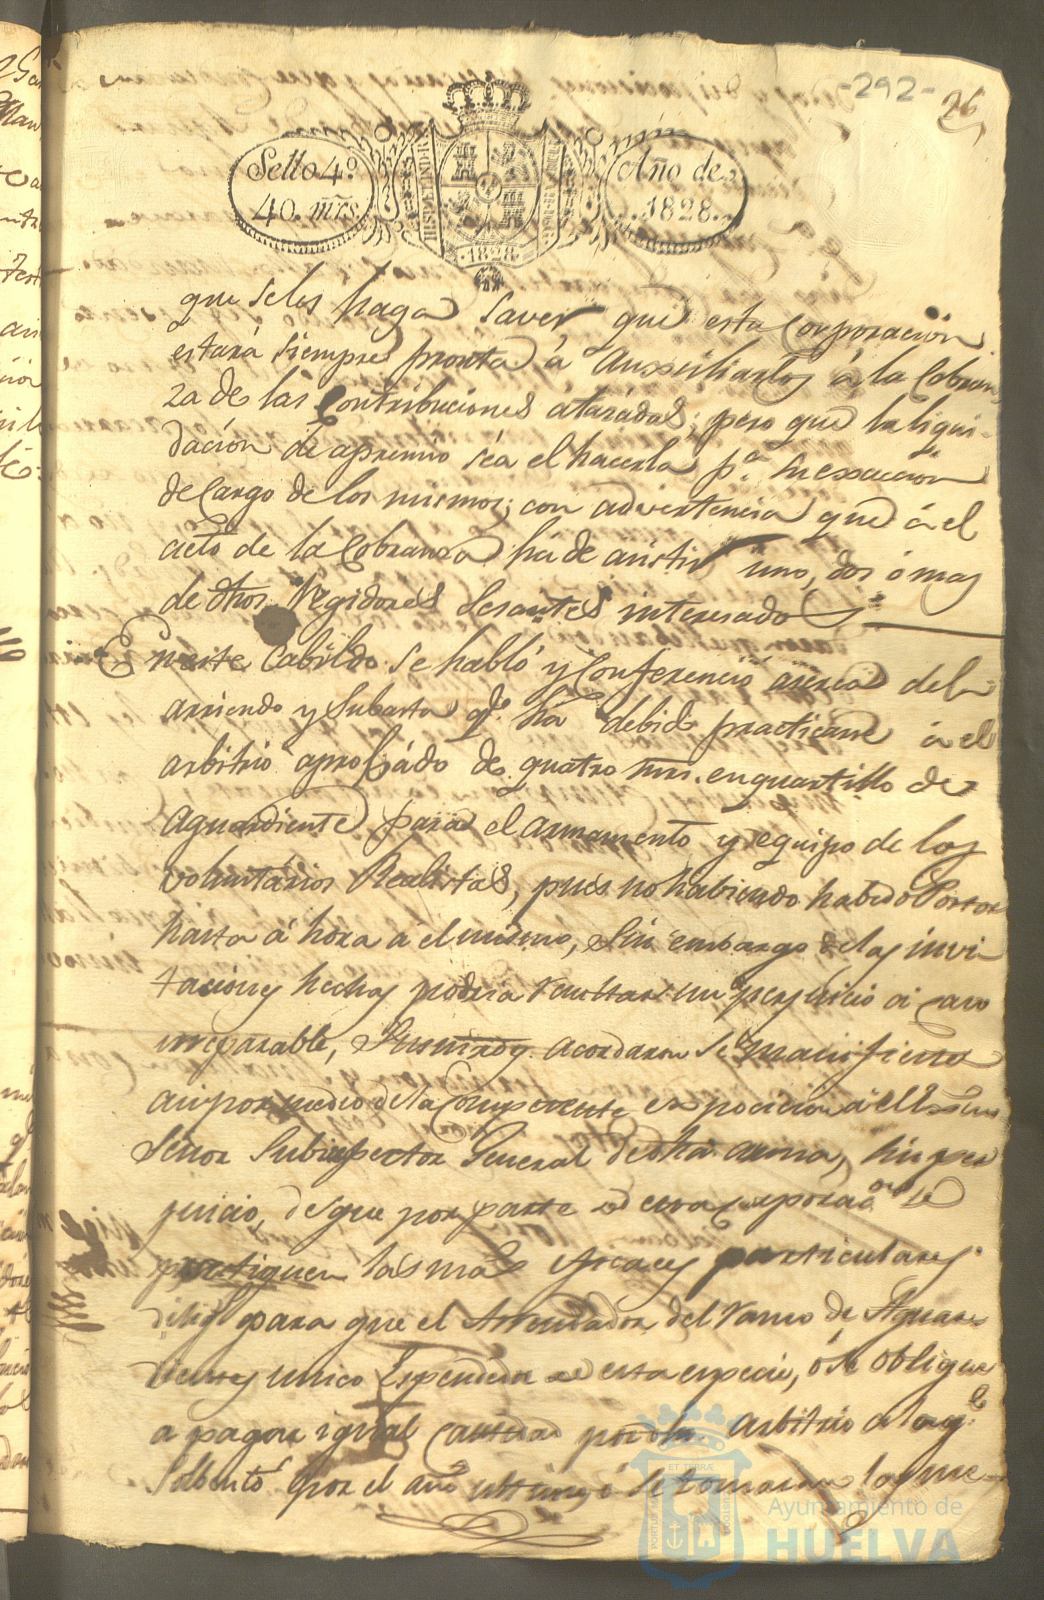 -292-
26
Sello 4º
40. mrs.
Año de
1828.
HISP. ET IND. R
1828
que se les haga saver que esta Corporacion
estara siempre pronta á aussiliarlos á la Cobran
za de las Contribuciones atrasadas; pero que la liqui-
dacion de apremio séa el hacerla pª. su execucion
de Cargo de los mismos; con advertencia que á el
acto de la Cobranza há de asistir uno, dos ó mas
de dhos. Regidores Cesantes interesados
En este Cabildo se habló y Conferenció acerca del
arriendo y Subasta qe. há debido practicarse á el
arbitrio aprobado de quatro mrs. en quartillo de
Aguardiente para el armamento y equipo de los
Voluntários Realistas, pues no habiendo habido Postor
hasta á hora á el mismo, sin embargo de las invi
taciones hechas podria resultar un perjuicio ai caso
irreparable, Sus mrds. acordaron se manifieste
asi por medio de la Competente exposicion á el Exmo
Señor Subinspector General de dha arma, sin per
juicio, de que por parte de esta Corporacon. se
practiquen las mas eficaces particulares
dilig para que el Arrendador del ramo de Aguar-
dientes unico Espendedor de esta especie, ó se obligue
a pagar igual Cantidad por dho. Arbitrio a la qe.
Solbentó por el año ultimo, ó se tomaran las me-
PORTUS MARIS
ET TERRÆ
CUSTODIA
Ayuntamiento de
HUELVA